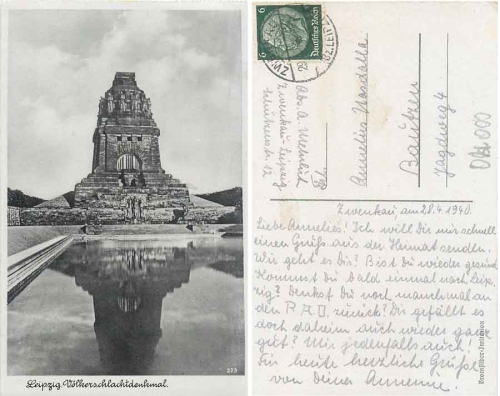 Leipzig. Völkerschlachtdenkmal.
273
6 Deutsches Reich 6
Abs. A.
Zwenkau-Leipzig
Annelies
Bautzen
Jagdweg 4
Zwenkau, am 28.4.1940.
Liebe Annelies! Ich will Dir nur schnell
einen Gruß aus der Heimat senden.
Wie geht es Dir? Bist Du wieder gesund
Kommst Du bald einmal nach Leip-
zig? Denkst Du noch manchmal an
den R A D zurück? Dir gefällt es
doch daheim auch wieder ganz
gut? Mir jedenfalls auch!
Für heute herzliche Grüße
von Deiner Annemie.